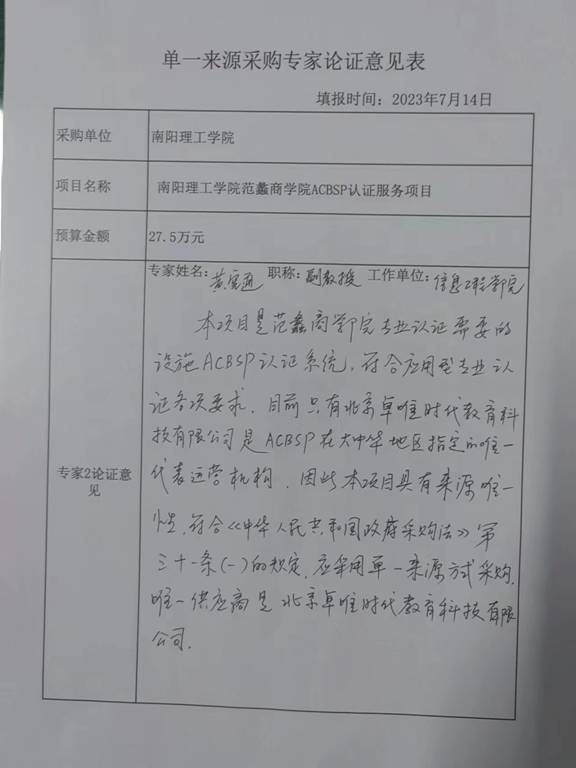 单一来源采购专家论证意见表
填报时间：2023年7月14日
采购单位 南阳理工学院
项目名称 南阳理工学院范蠡商学院ACBSP认证服务项目
预算金额 27.5万元
专家姓名：黄 职称：副教授 工作单位：信息工程学院
本项目是范蠡商学院专业认证需要的
设施ACBSP认证系统，符合应用型专业认
证各项要求．目前只有北京卓唯时代教育科
技有限公司是ACBSP在大中华地区指定的唯一
专家2论证意见
代表运营机构．因此本项目具有来源唯一
性，符合《中华人民共和国政府采购法》第
三十一条(一)的规定，应采用单一来源方式采购，
唯一供应商是北京卓唯时代教育科技有限
公司．